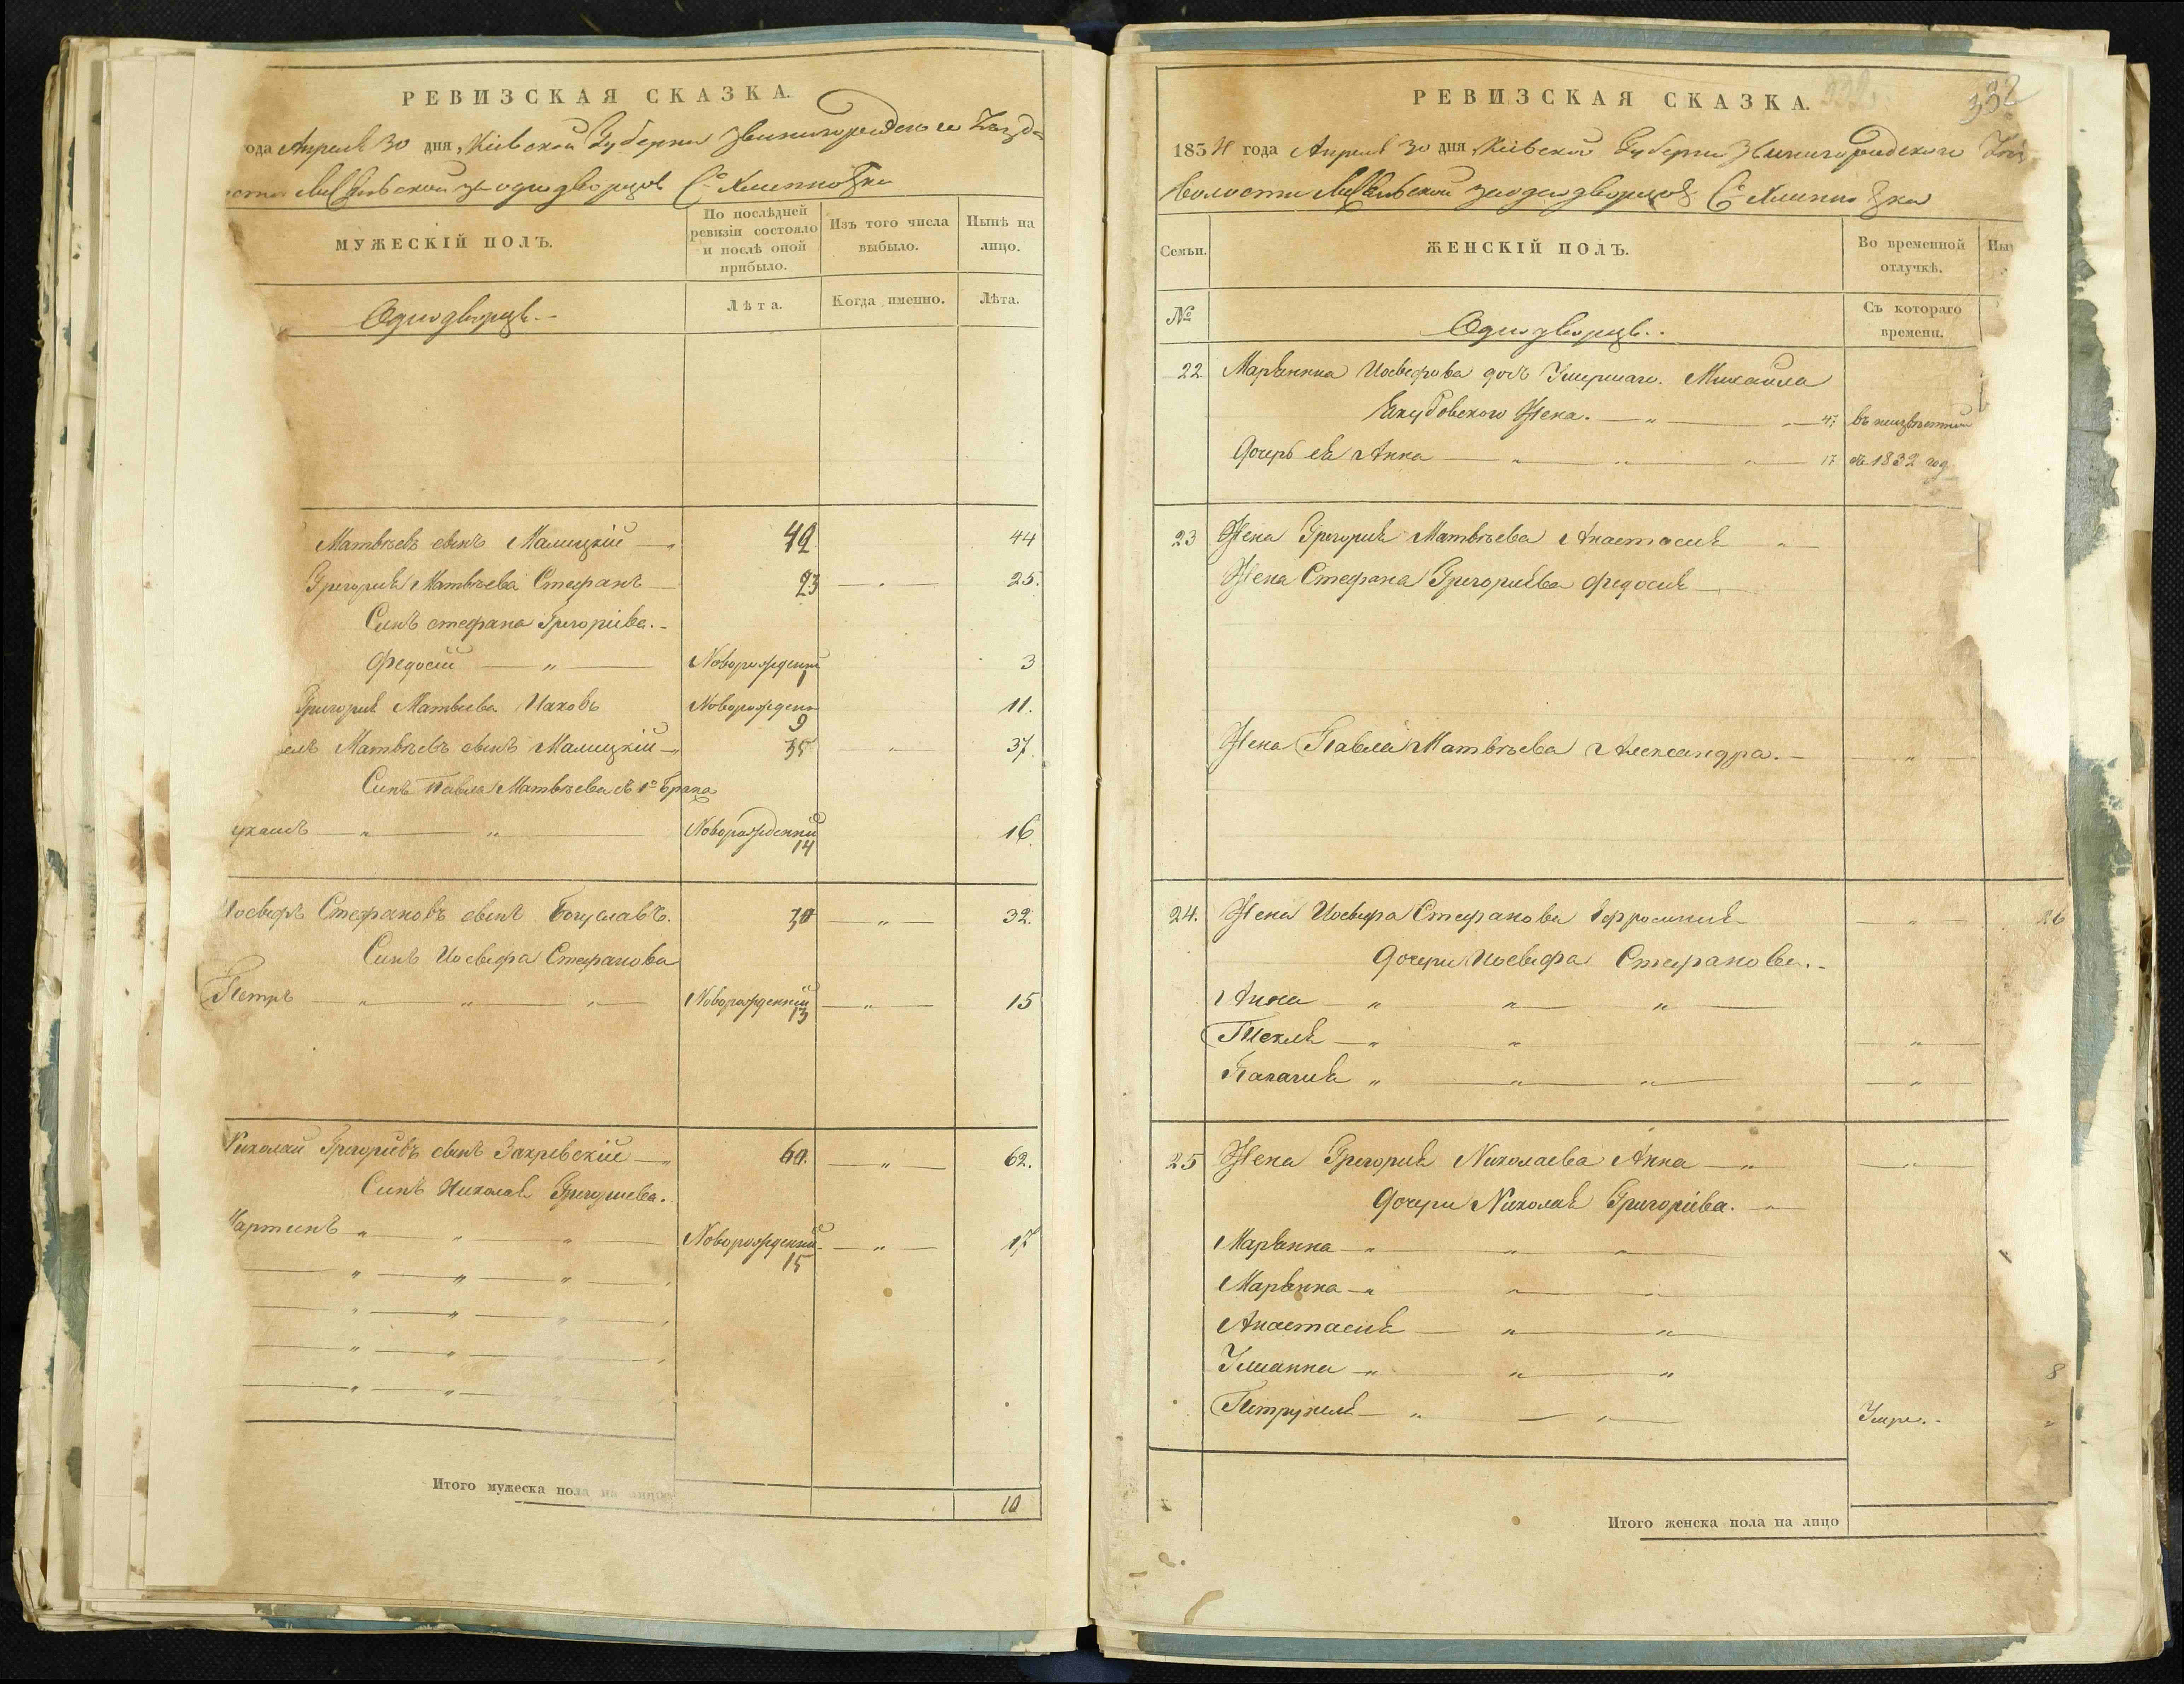 РЕВИЗСКАЯ СКАЗКА.
ода Апреля 30 дня, Кіевской Губерніи Звенигородского
за однодворцов С.
МУЖЕСКІЙ ПОЛЪ.
По послѣдней ревизіи состояло и послѣ оной прибыло.
Изъ того числа выбыло.
Нынѣ на лицо.
Однодворцы.
Лѣта.
Когда именно.
Лѣта.
Матвѣевъ сынъ Малицкій 42 44
Григорія Матвѣева Стефанъ 23 25.
Сынъ стефана Григоріева.
Федосій Новорожденый 1 3
Григорія Матвеева Иаковъ Новорожден 9 11.
елъ Матвѣевъ сынъ Малицкій 35 37
Сынъ Павла Матвѣева съ 1го Брака
укашъ Новорожденый 14 16
Иосифъ Стефановъ сынъ Богуславъ. 30 32.
Сынъ Иосифа Стефанова
Петръ Новорожденный 13 15
Николай Григоріевъ сынъ Закревскій 60. 62.
Сынъ Николая Григориева.
Мартинъ Новорожденный 15 17
Итого мужеска пола на лицо
10
РЕВИЗСКАЯ СКАЗКА.
332
1834 года Апреля 30 дня Кіевской Губерніи Звенигородского
Волости за однодворцов С.
Семьи.
ЖЕНСКІЙ ПОЛЪ.
Во временной отлучкѣ.
Ны
№
Однодворцы.
Съ котораго времени.
22 Маріянна Иосифова дочь Умершаго Михаила
Якубовского Жена. 47 въ неизвестной
Дочерь ея Анна 17 съ 1832 год
23 Жена Григорія Матвѣева Анастасия
Жена Стефана Григориева Федосия
Жена Павла Матвѣева Александра.
24. Жена Иосифа Стефанова Ефросиния 26
Дочери Иосифа Стефанова.
Анна
Текля
25 Жена Григория Николаева Анна
Дочери Николая Григоріева.
Марянна
Марянна
Анастасия
Улианна 8
Петрунеля Умре.
Итого женска пола на лицо